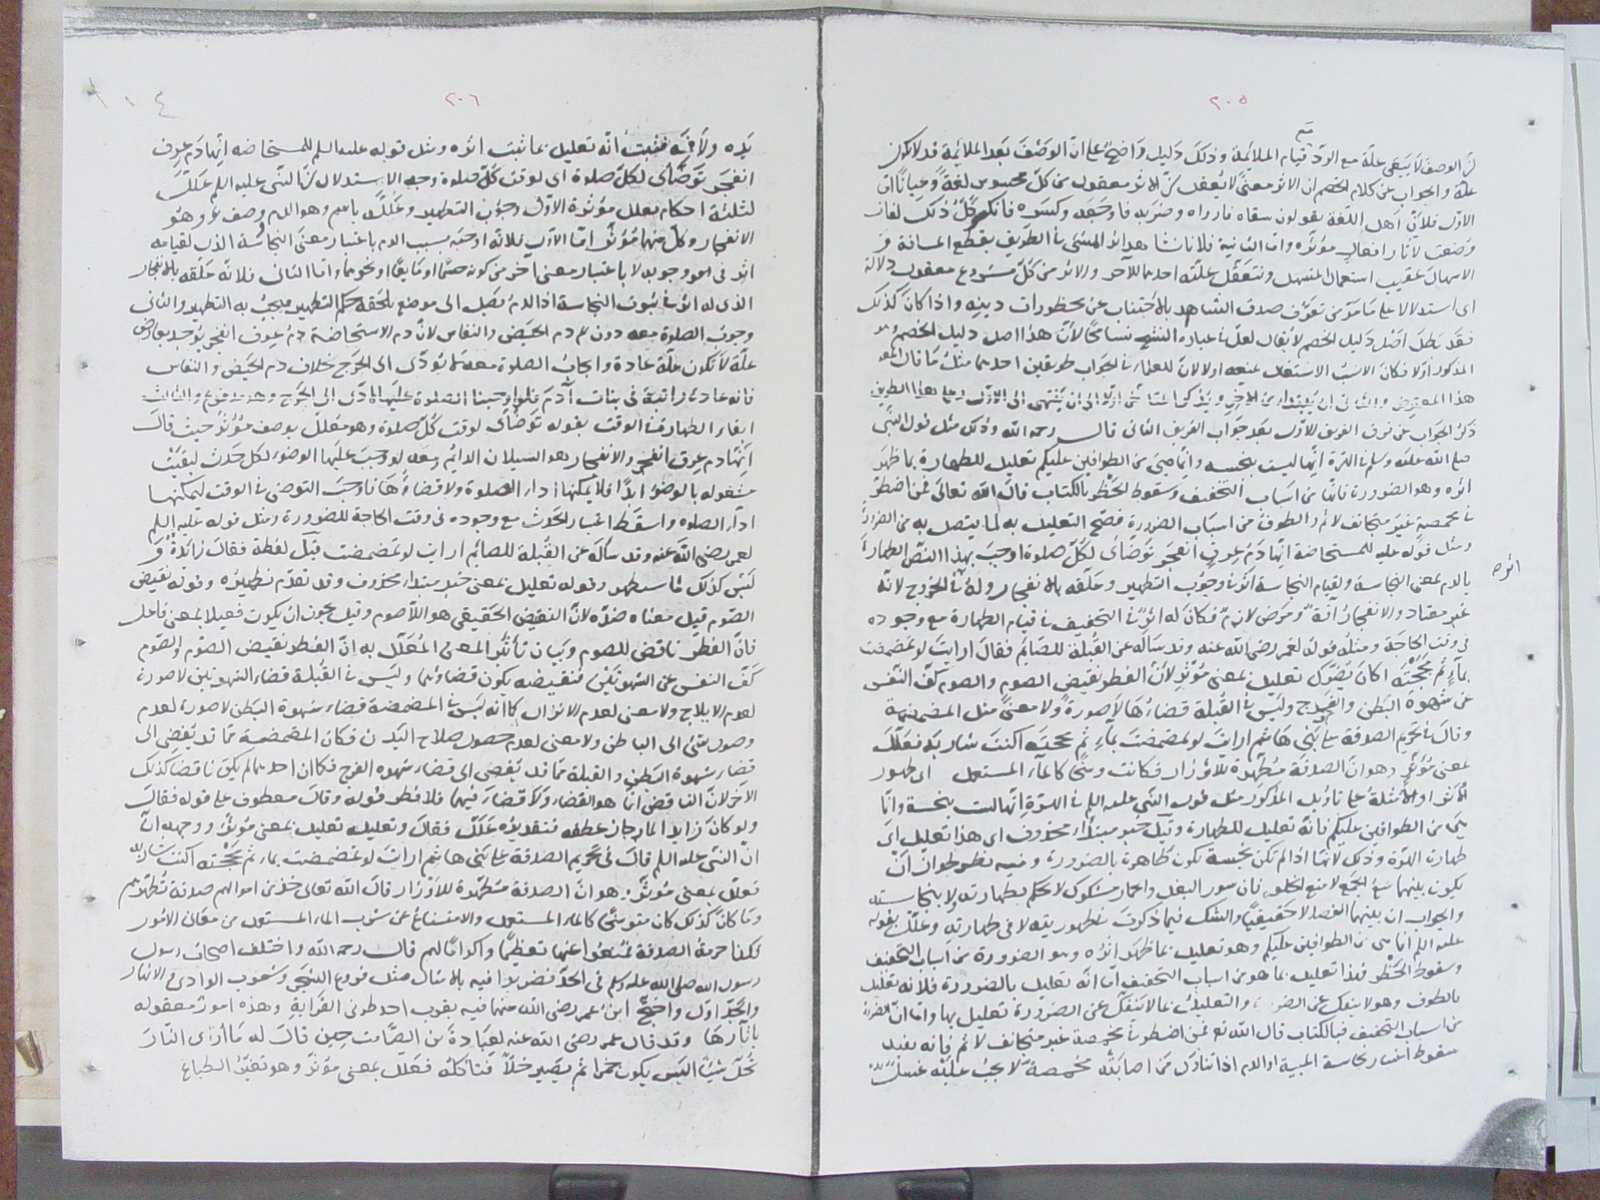 ٢٠٥
لان الوصف لا يبقى علة مع الرد قيام الملائمة وذلك دليل واضح على ان الوصف بعد الملائمة قد لا يكون
علة والجواب عن كلام الخصم ان الاثر معنى لا يعقل لان الاثر معقول من كل محسوس لغة وعيانا اما
الاول فلان اهل اللغة يقولون سقاه فارواه وضربه فاوجعه وكسره فانكسر كل ذلك لغات
وضعت لآثار افعال مؤثره واما الثانية فلانا نشاهد اثر المشي في الطريق بقطع المسافة و
الاسهال عقيب استعمال المسهل ونتعقل علته احدهما للآخر والاثر من كل مشروع معقول دلالة
اى استدلالا على ما مر من تعرف صدق الشاهد بالاجتناب عن محظورات دينه واذا كان كذلك
فقد بطل اصل دليل الخصم لا يقال لعل في عباره الشيخ تسامحا لان هذا اصل دليل الخصم
المذكور اولا فكان الانسب الاشتغال بمنعه اولا لان للعلماء في الجواب طريقين احدهما مثل ما قال
هذا المعترض والثاني ان يبتدا من الآخر ويذكر الى ان ينتهى الى الاول وعلى هذا الطريق
ذكر الجواب عن قول الفريق الاول بعد جواب الفريق الثانى قال رحمه الله وذلك مثل قول النبي
صلى الله عليه وسلم في الهرة انها ليست بنجسة وانما هي من الطوافين عليكم تعليل للطهارة بما ظهر
اثره وهو الضرورة فانها من اسباب التخفيف وسقوط الحظر بالكتاب قال الله تعالى فمن اضطر
في مخمصة غير متجانف لاثم والطوف من اسباب الضرورة فصح التعليل به لما يتصل به من الضرورة
ومثل قوله عليه للمستحاضة انها دم عرق انفجر توضأى لكل صلوة اوجب بهذا النص الطهارة
بالدم لمعنى النجاسة ولقيام النجاسة اثر في وجوب التطهير وعلقه بالانفجار وله اثر في الخروج لانه
اثره
غير معتاد والانفجار آفة ومرض لازم فكان له اثر في التخفيف في قيام الطهارة مع وجوده
فى وقت الحاجة ومثله قوله لعمر رضى الله عنه وقد ساله عن القبلة للصائم فقال ارايت لو تمضمضت
بماء ثم مججته اكان يضرك تعليل بمعنى مؤثر لان الفطر نقيض الصوم والصوم كف النفس
عن شهوة البطن والفرج وليس في القبلة قضاءها لا صورة ولا معنى مثل المضمضة
وقال في تحريم الصدقة على بنى هاشم ارايت لو تمضمضت بماء ثم مججته اكنت شاربه فعلل
بمعنى مؤثر وهو ان الصدقة مطهرة للاوزار فكانت وسخا كالماء المستعمل اى ظهور
الاثر او الامثلة على تاويل المذكور مثل قول النبي عليه السلم في الهرة انها ليست بنجسة وانما
هي من الطوافين عليكم فانه تعليل للطهارة وقيل خبر مبتدأ محذوف اى هذا تعليل اى
طهارة الهرة وذلك لانها اذا لم تكن نجسة تكون طاهرة بالضرورة وفيه نظر لجواز ان
يكون بينهما منع الجمع لا منع الخلو فان سور البغل والحمار مشكوك لا حكم بطهارته ولا بنجاسته
والجواب ان بينهما انفصالا حقيقيا والشك فيما ذكرت في طهوريته لا في طهارته وعلل بقوله
عليه السلم انما هى من الطوافين عليكم وهو تعليل بما ظهر اثره وهو الضرورة من اسباب التخفيف
وسقوط الحظر فهذا تعليل بما هو من اسباب التخفيف اما انه تعليل بالضرورة فلانه تعليل
بالطوف وهو لا ينفك عن الضرورة والتعليل بما لا ينفك عن الضرورة تعليل بها واما ان الضرورة
من اسباب التخفيف فبالكتاب قال الله تع فمن اضطر في مخمصة غير متجانف لاثم فانه يفيد
سقوط اعتبار نجاسة الميتة والدم اذا تناول من اصابته مخمصة لا يجب عليه غسل
٢٠٦
١٠٤
يده ولا فمه فثبت انه تعليل بما ثبت اثره ومثل قوله عليه السلم للمستحاضه انها دم عرق
انفجر توضأى لكل صلوة اى لوقت كل صلوة وجه الاستدلال ان النبى عليه السلم علل
لثلثة احكام بعلل مؤثرة الاول وجوب التطهير وعلل باسم وهو الدم وصفة وهو
الانفجار وكل منهما مؤثر اما الاول فلانه اوجبه بسبب الدم باعتبار معنى النجاسة الذى لقيامه
اثر فى وجوبه لا باعتبار معنى آخر من كونه جسما او مايعا او نحوهما واما الثانى فلانه علقه بالانفجار
الذى له اثر في ثبوت النجاسة اذ الدم يصل الى موضع يلحقه حكم التطهير فيجب به التطهير والثانى
وجوب الصلوة معه دون دم الحيض والنفاس لان دم الاستحاضة دم عرق انفجر يوجد بعارض
علة لا تكون علة عادة وايجاب الصلوة معه مما يؤدى الى الحرج بخلاف دم الحيض والنفاس
فانه عادة راتبة فى بنات آدم فلو اوجبنا الصلوة عليها لادى الى الحرج وهو مدفوع والثالث
ابقاء الطهارة في الوقت بقوله توضأى لوقت كل صلوة وهو معلل بوصف مؤثر حيث قال
انها دم عرق انفجر والانفجار هو السيلان الدايم ومعه لو وجب عليها الوضوء لكل حدث لبقيت
مشغوله بالوضوء ابدا فلا يمكنها اداء الصلوة ولا قضاؤها فاوجب التوضى في الوقت ليمكنها
اداء الصلوه واسقط اعتبار الحدث مع وجوده فى وقت الحاجة للضرورة ومثل قوله عليه السلم
لعمر رضى الله عنه وقد سأله عن القبلة للصائم ارايت لو تمضمضت قيل لفظة فقال زائدة و
ليس كذلك وقوله تعليل بمعنى خبر مبتدا محذوف وقد تقدم نظيره وقوله نقيض
الصوم قيل معناه ضده لان النقيض الحقيقى هو اللاصوم وقيل يجوز ان يكون فعيلا بمعنى فاعل
فان الفطر ناقض للصوم وبيان تأثير المعنى المعلل به ان الفطر نقيض الصوم والصوم
كف النفس عن الشهوتين فنقيضه يكون قضاؤهما وليس في القبلة قضاء الشهوتين لا صورة
لعدم الايلاج ولا معنى لعدم الانزال كما انه ليس في المضمضة قضاء شهوة البطن لا صورة لعدم
وصول شئ الى الباطن ولا معنى لعدم حصول صلاح البدن فكان المضمضة مما قد يفضى الى
قضاء شهوة البطن والقبلة مما قد يفضى الى قضاء شهوه الفرج فكما ان احدهما لم يكن ناقضا كذلك
الآخر لان الناقض انما هو القضاء ولا قضاء فيهما فلا فطر قوله وقال معطوف على قوله فقال
ولو كان زايدا لما جاز عطفه فتقديره علل فقال وتعليله تعليل بمعنى مؤثر ووجهه ان
ان النبى عليه السلم قال فى تحريم الصدقة على بنى هاشم ارايت لو تمضمضت بماء ثم مججته اكنت شاربه
تعلق بمعنى مؤثر وهو ان الصدقة مطهرة للاوزار قال الله تعالى خذ من اموالهم صدقة تطهرهم
وما كان كذلك كان متوسخا كالماء المستعمل والامتناع عن شرب الماء المستعمل من معالى الامور
فكذا حرمة الصدقة تمنعوا عنها تعظيما واكراما لهم قال رحمه الله واختلف اصحاب رسول
رسول الله صلى الله عليه وسلم فى الجد فضربوا فيه بالامثال مثل فروع الشجر وشعوب الوادى والانهار
والجداول واحتج ابن عمر رضى الله عنهما فيه بقرب احد طرفى القرابة وهذه امور معقوله
بآثارها وقد قال عمر رضى الله عنه لعبادة بن الصامت حين قال له ما أرى النار
تحل شيئا اليس يكون خمرا ثم يصير خلا فتأكله فعلل بمعنى مؤثر وهو تغير الطباع